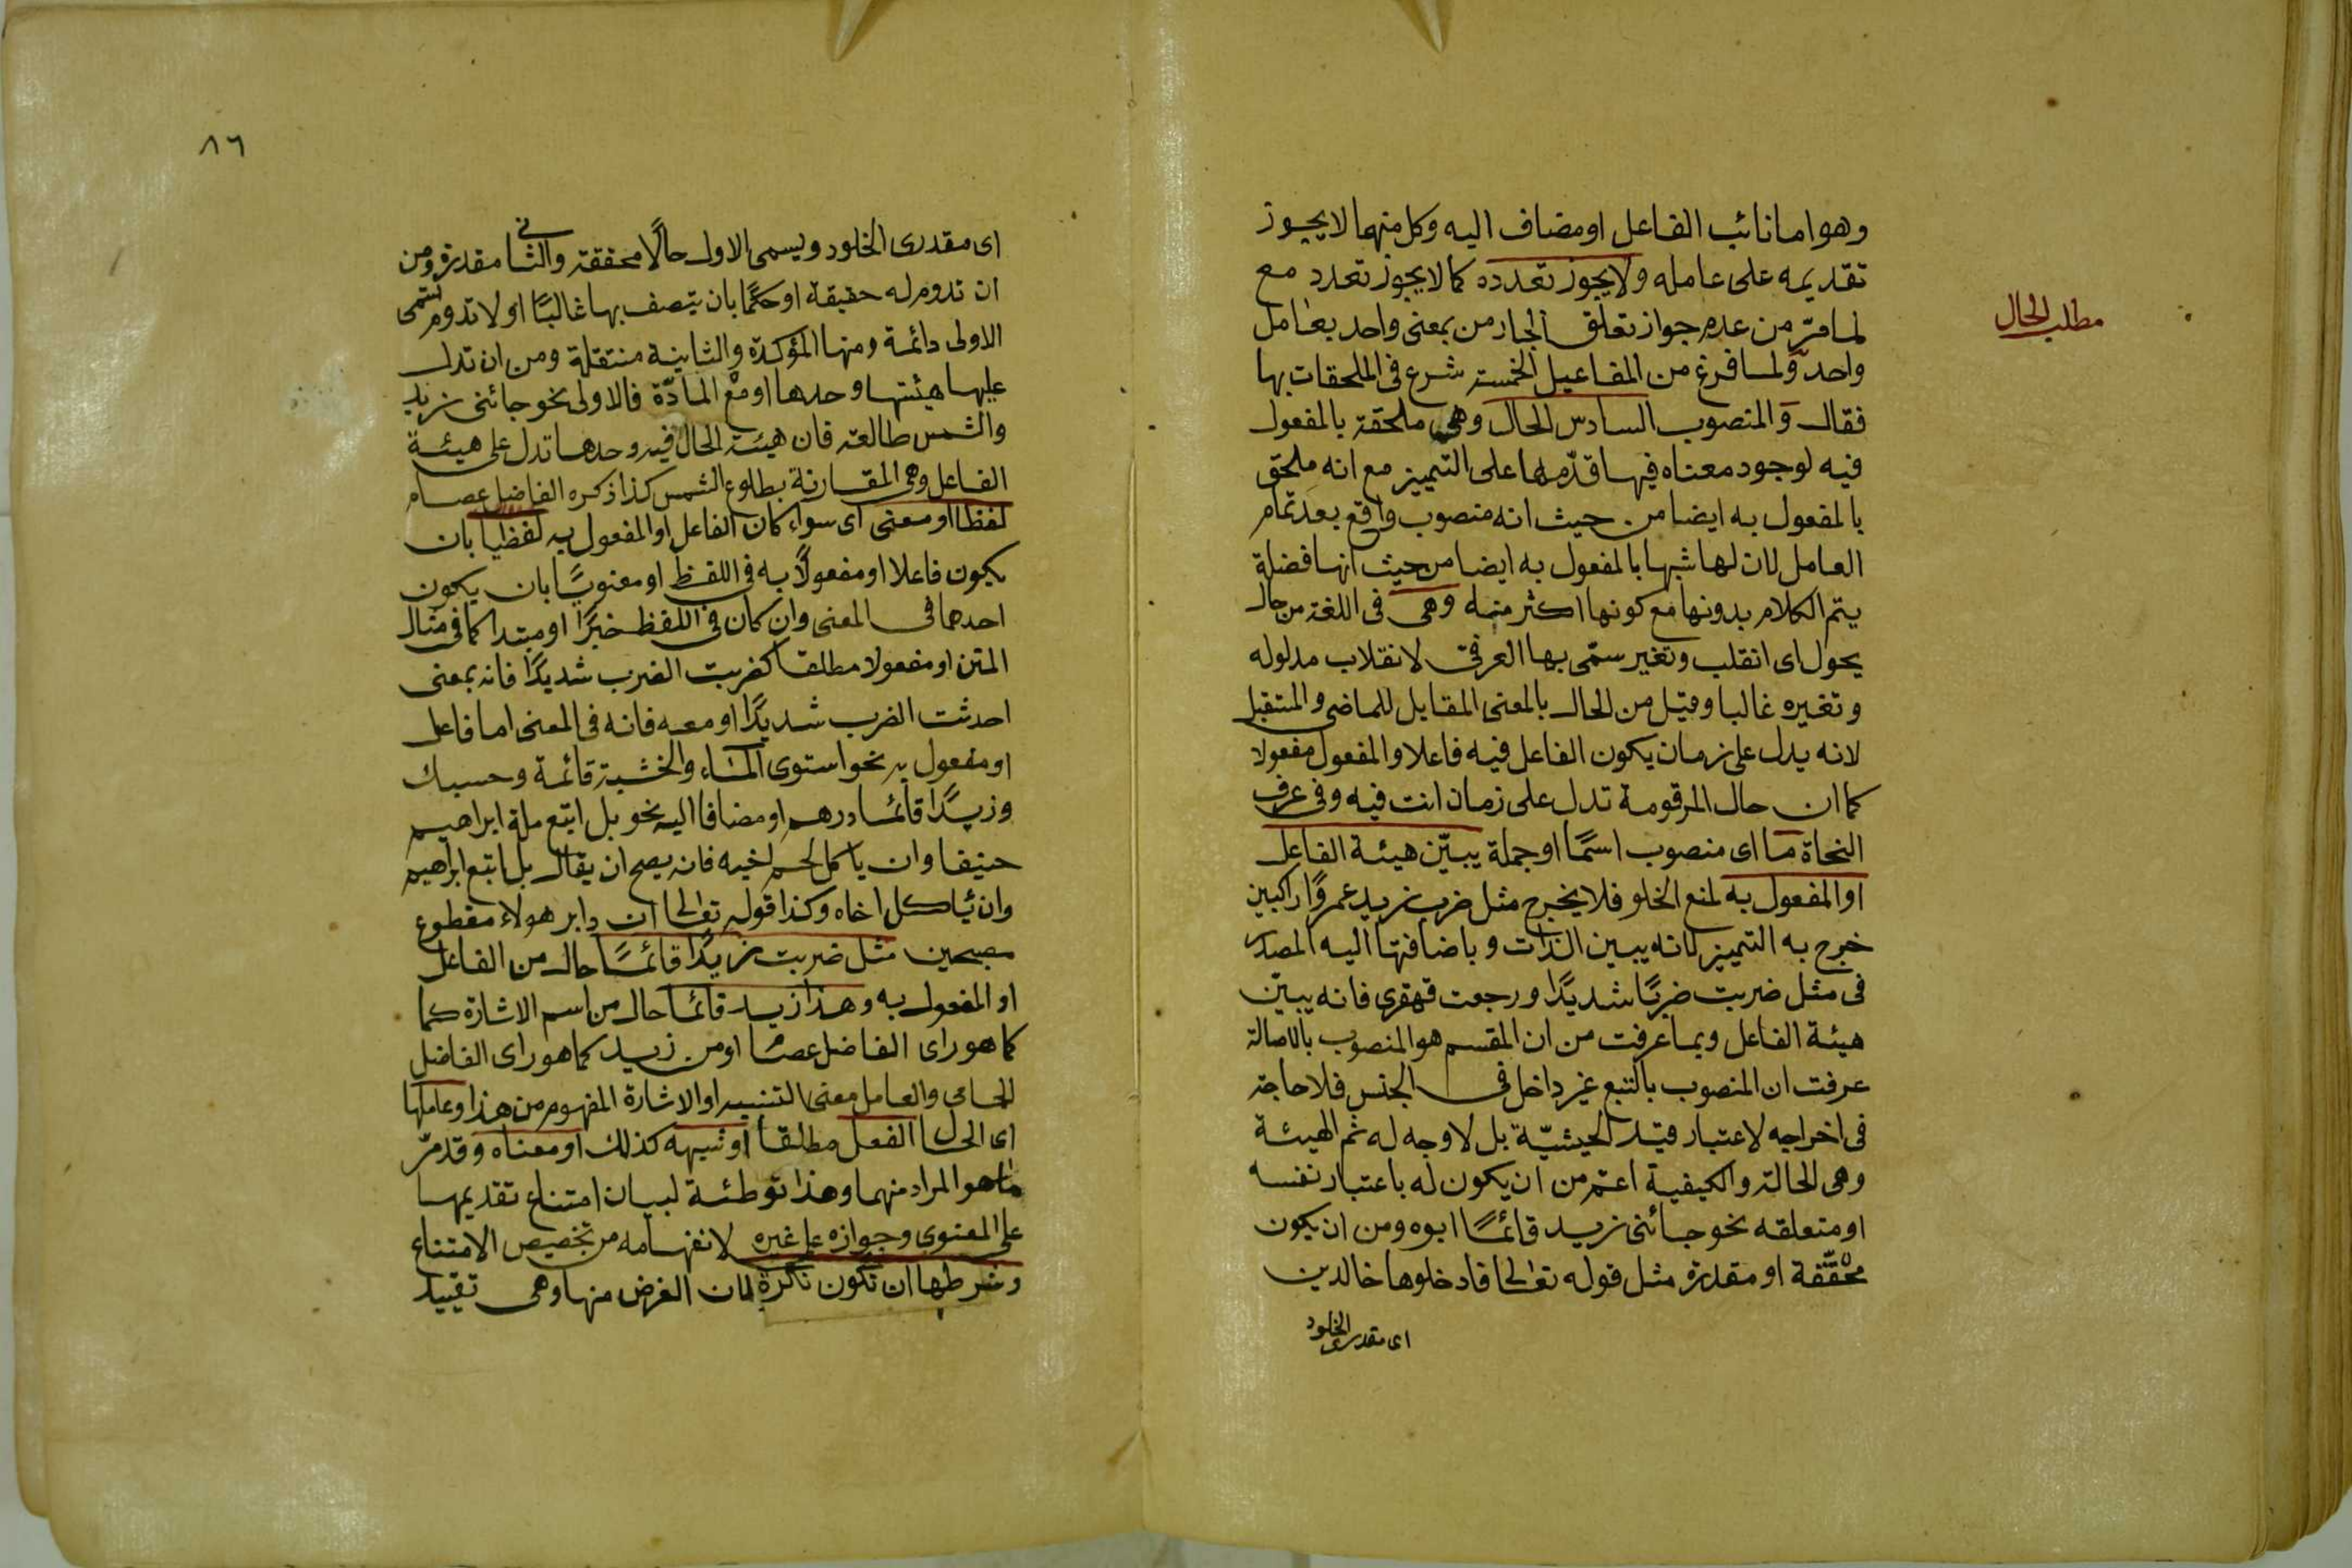 وهو اما نائب الفاعل او مضاف اليه وكل منهما لا يجوز
تقديمه على عامله ولا يجوز تعدده كما لا يجوز تعدد مع
لما مرّ من عدم جواز تعلق الجار من بمعنى واحد بعامل
واحد ولما فرغ من المفاعيل الخمسة شرع فى الملحقات بها
فقال والمنصوب السادس الحال وهى ملحقة بالمفعول
فيه لوجود معناه فيها قدّمها على التمييز مع انه ملحق
بالمفعول به ايضا من حيث انه منصوب واقع بعد تمام
العامل لان لها شبها بالمفعول به ايضا من حيث انها فضلة
يتم الكلام بدونها مع كونها اكثر منه وهى فى اللغة من حال
يحول اى انقلب وتغير سمّى بها العرفى لانقلاب مدلوله
وتغيره غالبا وقيل من الحال بالمعنى المقابل للماضى والمستقبل
لانه يدل على زمان يكون الفاعل فيه فاعلا والمفعول مفعولا
كما ان حال المرقومة تدل على زمان انت فيه وفى عرف
النحاة ما اى منصوب اسمًا او جملة يبيّن هيئة الفاعل
او المفعول به لمنع الخلو فلا يخرج مثل ضرب زيد عمروًا راكبين
خرج به التمييز لانه يبين الذات وباضافتها اليه المصدر
فى مثل ضربت ضربًا شديدًا ورجعت قهقرى فانه يبيّن
هيئة الفاعل وبما عرفت من ان المقسم هو المنصوب بالاصالة
عرفت ان المنصوب بالتبع غير داخل فى الجنس فلا حاجة
فى اخراجه لاعتبار قيد الحيثيّة بل لا وجه له ثم الهيئة
وهى الحالة والكيفية اعتم من ان يكون له باعتبار نفسه
او متعلقه نحو جائنى زيد قائمًا ابوه ومن ان يكون
محقّقة او مقدرة مثل قوله تعالى فادخلوها خالدين
اى مقدرى الخلود
مطلب الحال
٨٦
اى مقدرى الخلود ويسمى الاول حالًا محققة والثانى مقدرة ومن
ان تدوم له حقيقة او حكمًا بان يتصف بها غالبًا او لا تدوم تسمى
الاولى دائمة ومنها المؤكدة والثانية منتقلة ومن ان تدل
عليها هيئتها وحدها او مع المادّة فالاولى نحو جائنى زيد
والشمس طالعة فان هيئة الحال فيه وحدها تدل على هيئة
الفاعل وهى المقارنة بطلوع الشمس كذا ذكره الفاضل عصام
لفظا او معنى اى سواء كان الفاعل او المفعول به لفظيا بان
يكون فاعلا او مفعولًا به فى اللفظ او معنويًا بان يكون
احدهما فى المعنى وان كان فى اللفظ خبرًا او مبتدا كما فى مثال
المتن او مفعولا مطلقا كضربت الضرب شديدًا فانه بمعنى
احدثت الضرب شديدًا او معه فانه فى المعنى اما فاعل
او مفعول به نحو استوى الماء والخشبة قائمة وحسبك
وزيدًا قائما درهم او مضافا اليه نحو بل اتبع ملة ابراهيم
حنيفا وان ياكل لحم اخيه فانه يصح ان يقال بل اتبع ابراهيم
وان ياكل اخاه وكذا قوله تعالى ان دابر هولاء مقطوع
مصبحين مثل ضربت زيدًا قائمًا حال من الفاعل
او المفعول به وهذا زيد قائما حال من اسم الاشارة كما
كما هو راى الفاضل عصام او من زيد كما هو راى الفاضل
الجامى والعامل معنى التنبيه او الاشارة المفهوم من هذا وعاملها
اى الحال الفعل مطلقا او شبهه كذلك او معناه وقد مرّ
ما هو المراد منهما وهذا توطئة لبيان امتناع تقديمها
على المعنوى وجوازه على غيره لانفهامه من تخصيص الامتناع
وشرطها ان تكون نكرة لان الغرض منها وهى تقييد